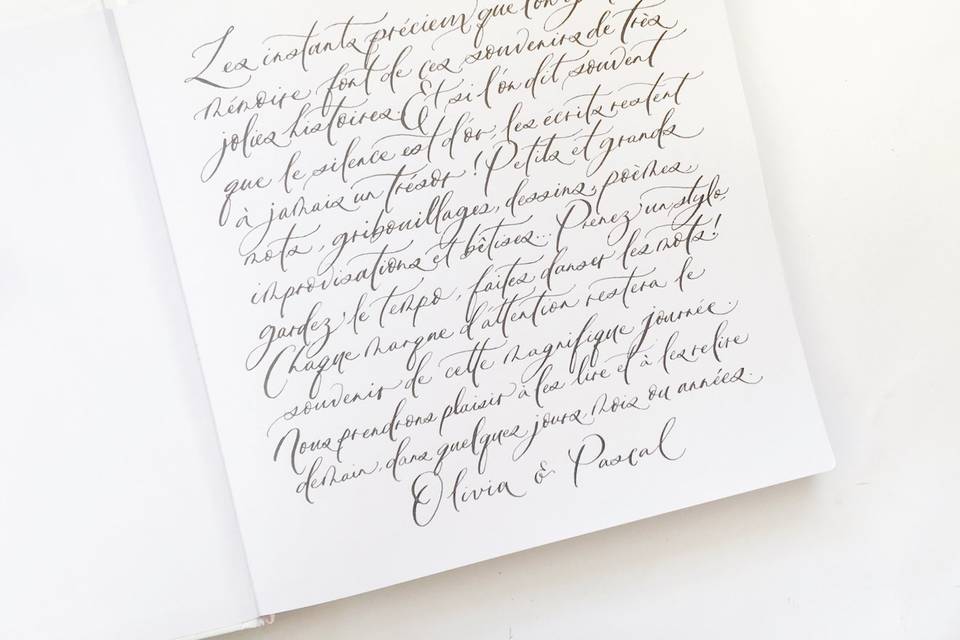 Les instants précieux que l'on
mémoire font de ces souvenirs de très
jolies histoires. Et si l'on dit souvent
que le silence est d'or, les écrits restent
à jamais un trésor ! Petits et grands
mots, gribouillages, dessins, poèmes,
improvisations et bêtises... Prenez un stylo,
gardez le tempo, faites danser les mots !
Chaque marque d'attention restera le
souvenir de cette magnifique journée.
Nous prendrons plaisir à les lire et à les relire
demain, dans quelques jours, mois ou années.
Olivia & Pascal